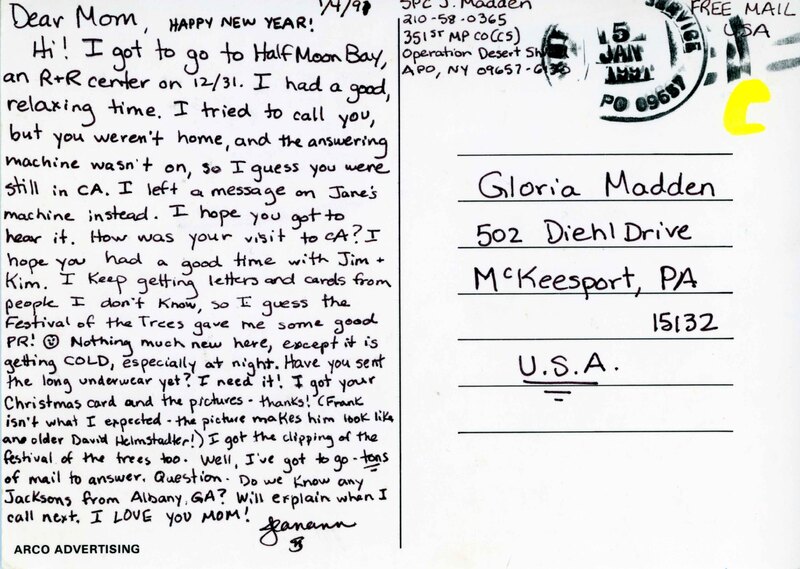 1/4/91
Dear Mom, HAPPY NEW YEAR!
Hi! I got to go to Half Moon Bay,
an R+R center on 12/31. I had a good,
relaxing time. I tried to call you,
but you weren't home, and the answering
machine wasn't on, so I guess you were
still in CA. I left a message on Jane's
machine instead. I hope you got to
hear it. How was your visit to CA? I
hope you had a good time with Jim +
Kim. I keep getting letters and cards from
people I don't know, so I guess the
Festival of the Trees gave me some good
PR! ☺ Nothing much new here, except it is
getting COLD, especially at night. Have you sent
the long underwear yet? I need it! I got your
Christmas card and the pictures - thanks! (Frank
isn't what I expected - the picture makes him look like
an older David Helmstadler!) I got the clipping of the
festival of the trees too. Well, I've got to go - tons
of mail to answer. Question. Do we know any
Jacksons from Albany, GA? Will explain when I
call next. I LOVE YOU MOM!
Jeanann
ARCO ADVERTISING
SPC J. Madden
210-58-0365
351st MP CO (CS)
Operation Desert
APO, NY 09657
SERVICE
5
JAN
1991
PO 09657
FREE MAIL
USA
Gloria Madden
502 Diehl Drive
McKeesport, PA
15132
U.S.A.